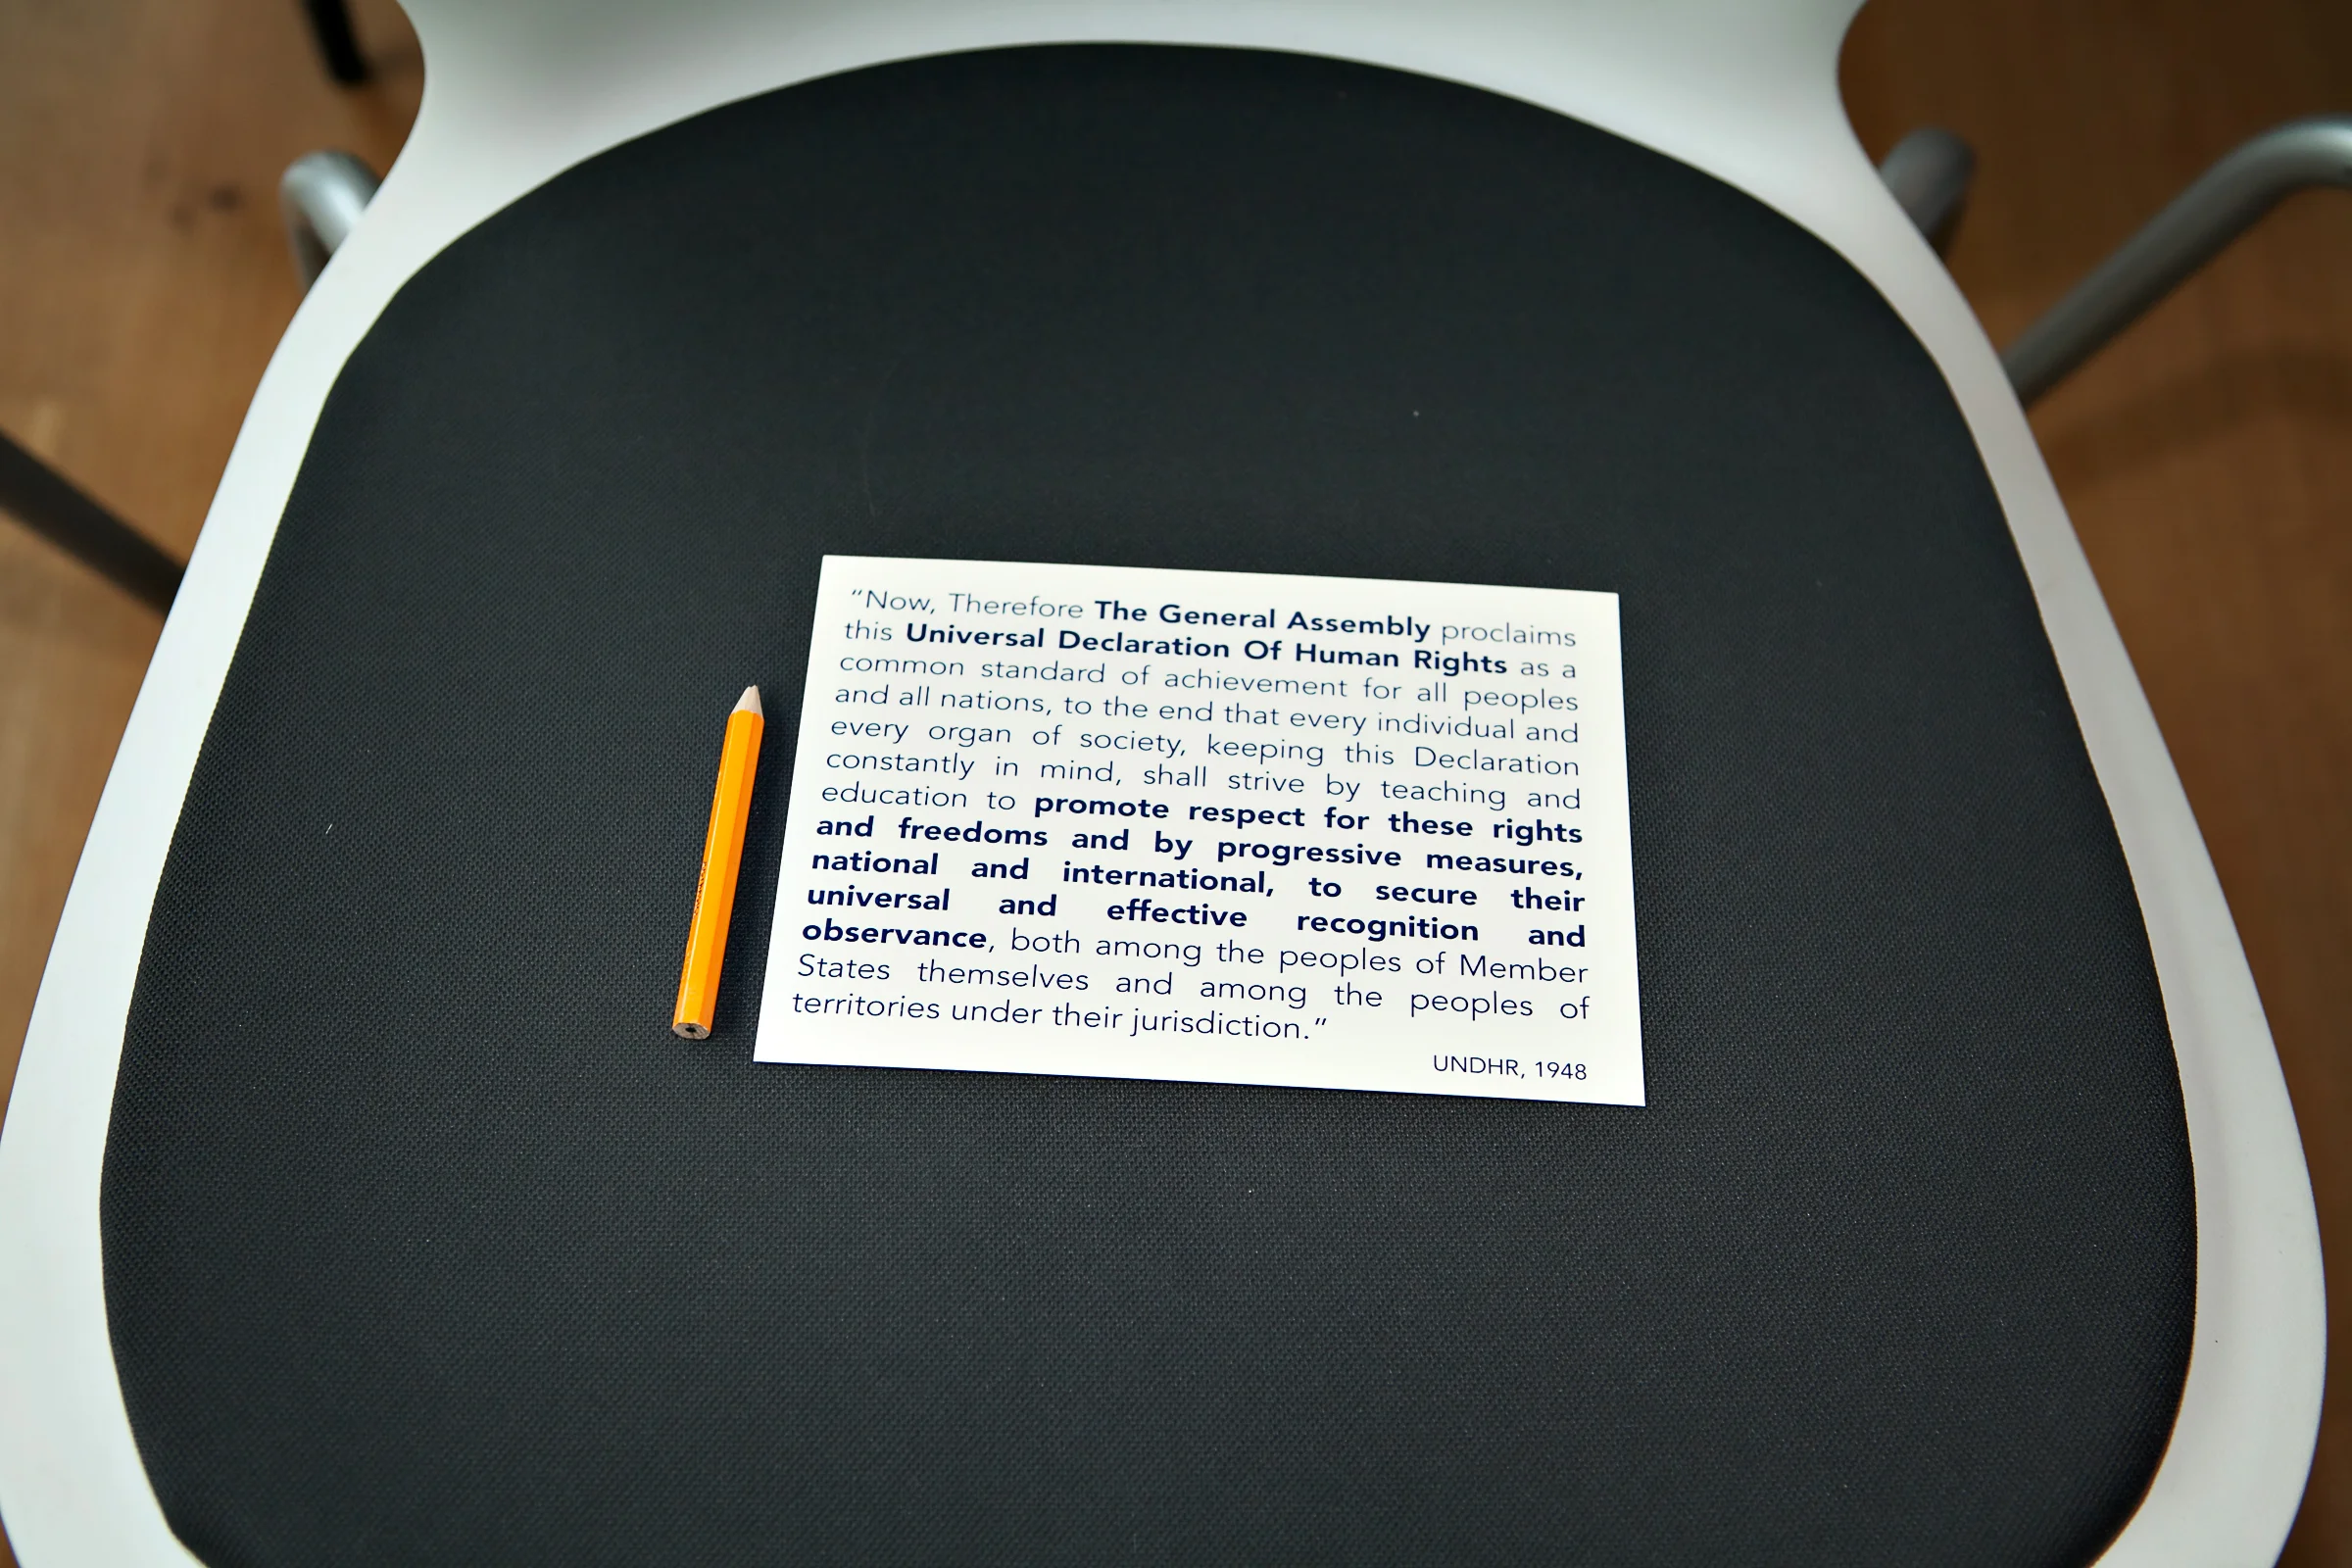 “Now, Therefore The General Assembly proclaims
this Universal Declaration Of Human Rights as a
common standard of achievement for all peoples
and all nations, to the end that every individual and
every organ of society, keeping this Declaration
constantly in mind, shall strive by teaching and
education to promote respect for these rights
and freedoms and by progressive measures,
national and international, to secure their
universal and effective recognition and
observance, both among the peoples of Member
States themselves and among the peoples of
territories under their jurisdiction.”
UNDHR, 1948